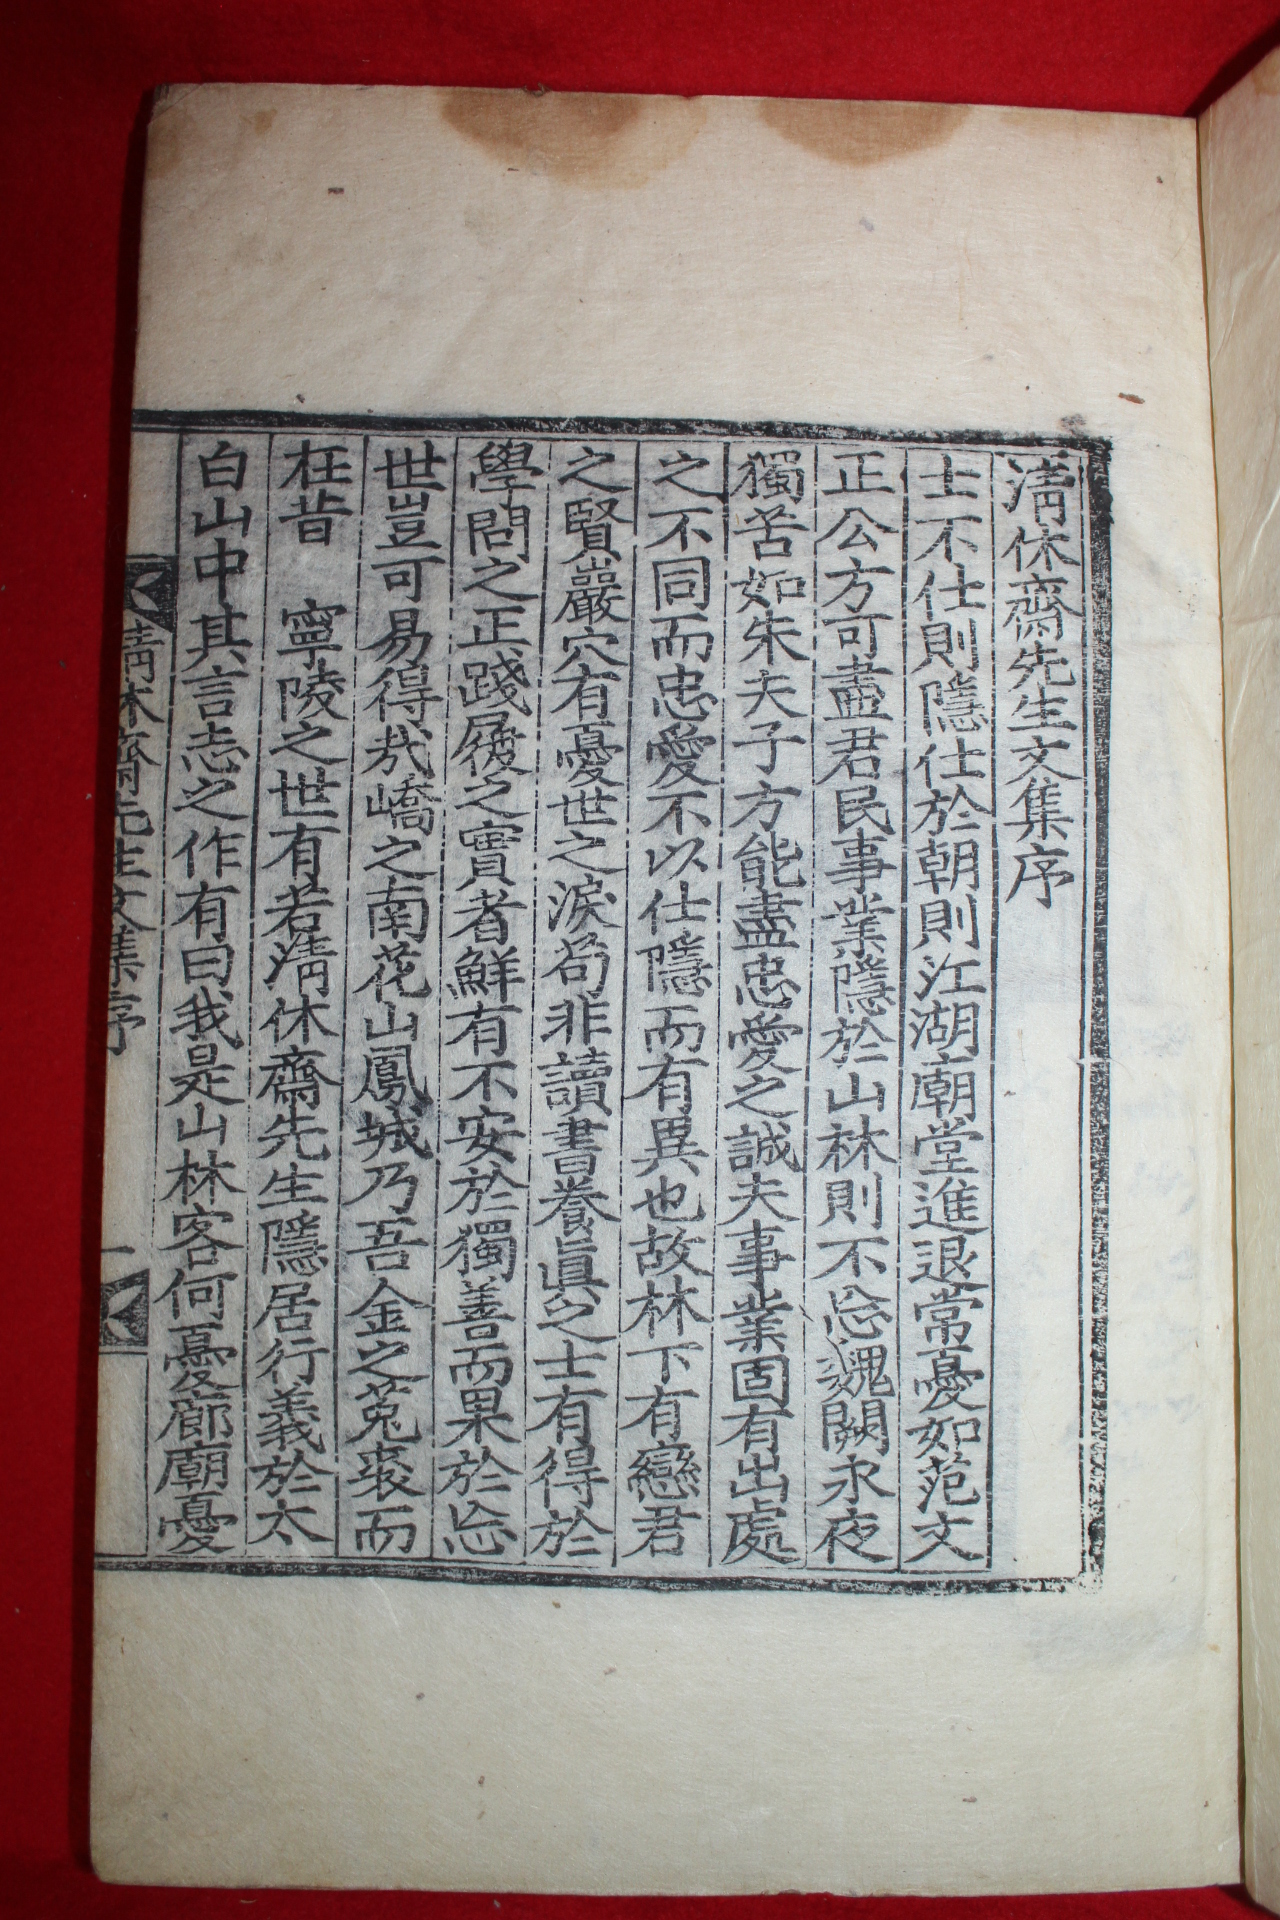 清休齋先生文集序
士不仕則隱仕於朝則江湖廟堂進退常憂如范文
正公方可盡君民事業隱於山林則不忘魏闕永夜
獨苦如朱夫子方能盡忠愛之誠夫事業固有出處
之不同而忠愛不以仕隱而有異也故林下有戀君
之賢巖穴有憂世之淚苟非讀書養眞之士有得於
學問之正踐履之實者鮮有不安於獨善而果於忘
世豈可易得㦲嶠之南花山鳳城乃吾金之菟裘而
在昔 寧陵之世有若清休齋先生隱居行義於太
白山中其言志之作有曰我是山林客何憂廊廟憂
清休齋先生文集序 一